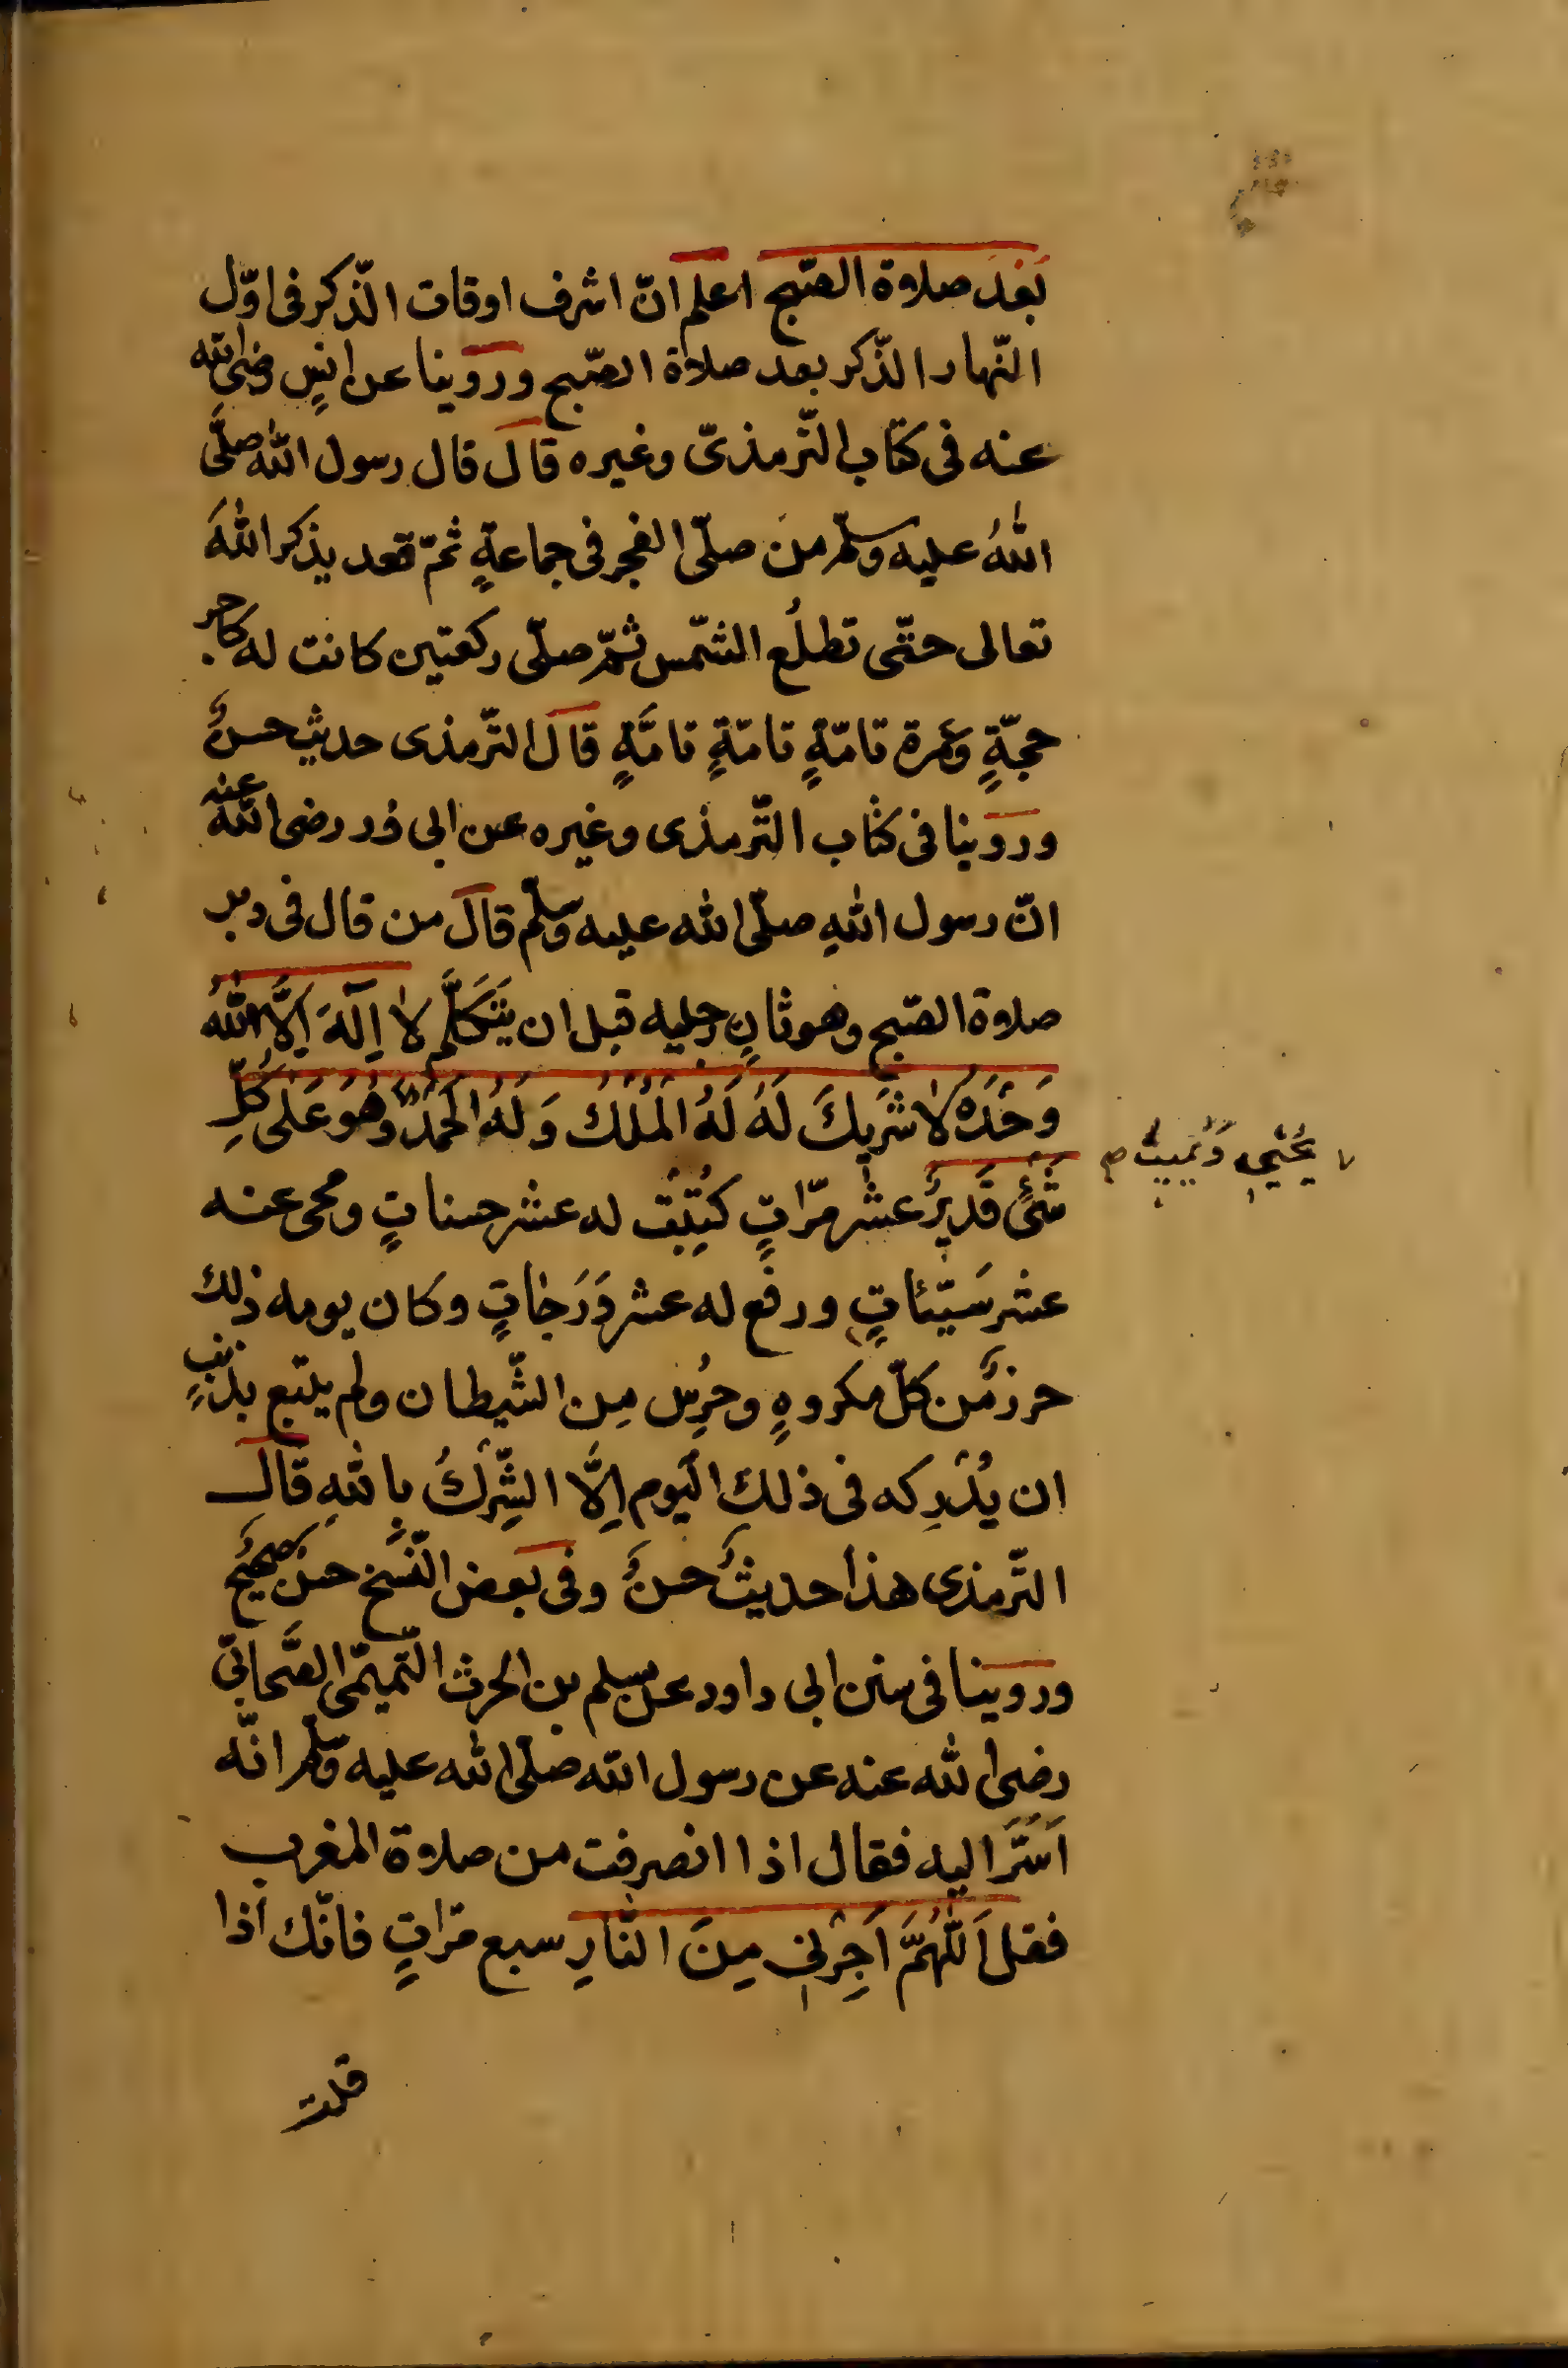 بَعْدَ صلاوة الصّبح اعلم انّ اشرف اوقات الذّكر فى اوّل
النّهار الذّكر بعد صلاة الصّبح وروينا عن انسٍ رضى الله
عنه فى كتاب التّرمذىّ وغيره قال قال رسول الله صلَّى
اللهُ عليه وسلّم من صلّى الفجر فى جماعةٍ ثمّ قعد يذكر اللهَ
تعالى حتّى تطلُع الشّمس ثمّ صلّى ركعتين كانت له كاجر
حجّةٍ وعُمرة تامّةٍ تامّةٍ تامَّةٍ قال التّرمذى حديث حسنٌ
وروينا فى كتاب التّرمذى وغيره عن ابى ذر رضى الله عنه
انّ رسول اللهِ صلّى الله عليه وسلّم قال من قال فى دبر
صلاوة الصّبح وهو ثانٍ رجليه قبل ان يَتَكَلَّم لا اِلٰهَ اِلَّا اللهُ
وَحْدَهُ لَا شَرِيكَ لَهُ لَهُ الْمُلْكُ وَلَهُ الْحَمْدُ وَهُوَ عَلٰى كُلِّ
يُحْيِى وَيُمِيتُ صح
شَئٍ قَدِيرٌ عشر مرّاتٍ كُتِبَت له عشر حسناتٍ ومحى عنه
عشر سَيّئاتٍ ورفع له عشر دَرَجَاتٍ وكان يومه ذلك
حرز من كلّ مكروهٍ وحرِس مِن الشّيطان ولم يتبع بذنبٍ
ان يُدْرِكه فى ذلك اليوم اِلَّا الشِّرْكُ بِاللهِ قال
التّرمذى هذا حديثٌ حسنٌ وفى بعض النّسخ حسن صحيح
وروينا فى سنن ابى داود عن مسلم بن الحرث التّميمّى الصَّحابىّ
رضى الله عنه عن رسول الله صلّى الله عليه وسلّم انّه
اَسَرَّ اليه فقال اذا انصرفت من صلاوة المغرب
فقل اَللّٰهُمَّ اَجِرْنِى مِنَ النَّارِ سبع مرّاتٍ فانّك اذا
قلت